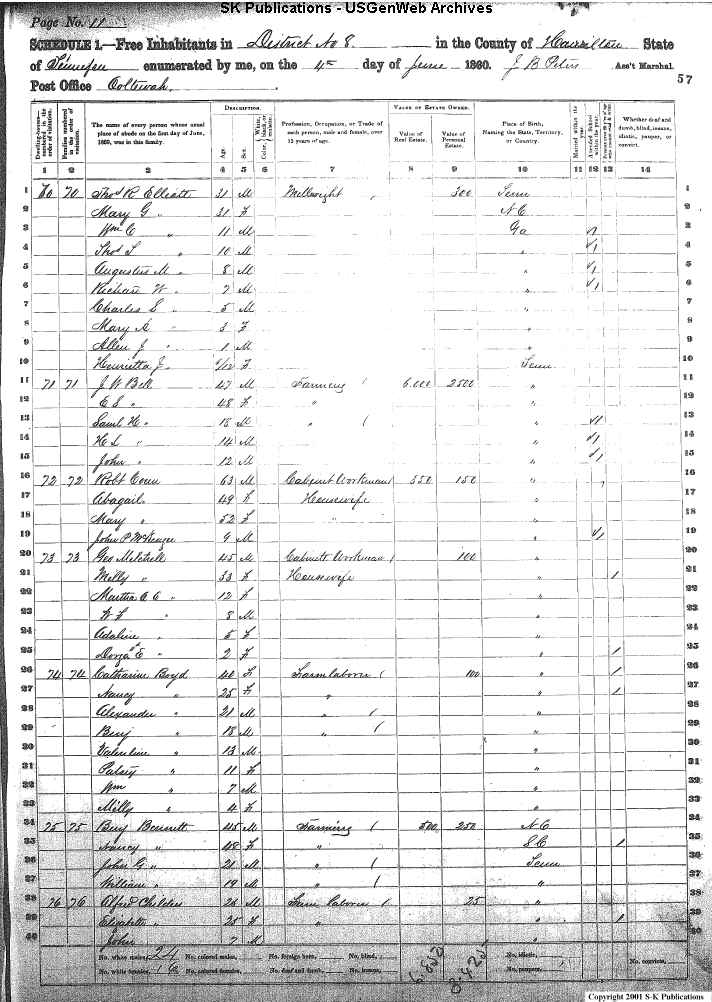 SK Publications - USGenWeb Archives
Page No. 11
SCHEDULE 1.—Free Inhabitants in District No 8. in the County of Hamilton State
of Tennessee enumerated by me, on the 4th day of June 1860. J B Peters Ass't Marshal.
Post Office Ooltewah. 57
DESCRIPTION. VALUE OF ESTATE OWNED.
Dwelling-houses—numbered in the order of visitation. Families numbered in the order of visitation. The name of every person whose usual place of abode on the first day of June, 1860, was in this family. Age. Sex. Color, White, black, or mulatto. Profession, Occupation, or Trade of each person, male and female, over 15 years of age. Value of Real Estate. Value of Personal Estate. Place of Birth, Naming the State, Territory, or Country. Married within the year. Attended School within the year. Whether deaf and dumb, blind, insane, idiotic, pauper, or convict.
1 2 3 4 5 6 7 8 9 10 11 12 13 14
1 70 70 Thos R Elliott 31 M Millwright 300 Tenn 1
2 Mary G " 31 F N C 2
3 Wm C " 11 M Ga √1 3
4 Thos S " 10 M " √1 4
5 Augustus M " 8 M " √1 5
6 Richard W " 7 M " √1 6
7 Charles S " 5 M " 7
8 Mary A " 3 F " 8
9 Allen J " 1 M " 9
10 Henrietta J " 6/12 F Tenn 10
11 71 71 J W Bell 47 M Farming 6.000 2500 " 11
12 E S " 48 F " " 12
13 Saml H " 18 M " " √1 13
14 H L " 14 M " √1 14
15 John " 12 M " √1 15
16 72 72 Robt Conn 63 M Cabinet Workman 350 150 " 16
17 Abagail " 49 F Housewife " 17
18 Mary " 52 F " " 18
19 John P McKenzie 9 M " √1 19
20 73 73 Geo Mitchell 45 M Cabinet Workman 100 " 20
21 Milly " 33 F Housewife " 1 21
22 Martha A E " 12 F " 22
23 W L " 8 M " 23
24 Adaline " 5 F " 24
25 E " 2 F " 1 25
26 74 74 Catharine Boyd 40 F Farm laborer 100 " 1 26
27 Nancy " 25 F " " 1 27
28 Alexander " 21 M " " 28
29 Benj " 18 M " " 29
30 Valentine " 13 M " 30
31 Patsey " 11 F " 31
32 Wm " 7 M " 32
33 Milly " 4 F " 33
34 75 75 Benj Bennett 45 M Farming 500 250 N C 34
35 Nancy " 48 F " S C 1 35
36 John G " 21 M " Tenn 36
37 William " 19 M " " 37
38 76 76 Alfred Childers 26 M Farm laborer 25 " 38
39 Elizabeth " 25 F " 1 39
40 John " 7 M " 40
No. white males, 24 No. colored males, No. foreign born, No. blind, No. idiotic, No. convicts,
No. white females, 16 No. colored females, No. deaf and dumb, No. insane, No. paupers,
Copyright 2001 S-K Publications